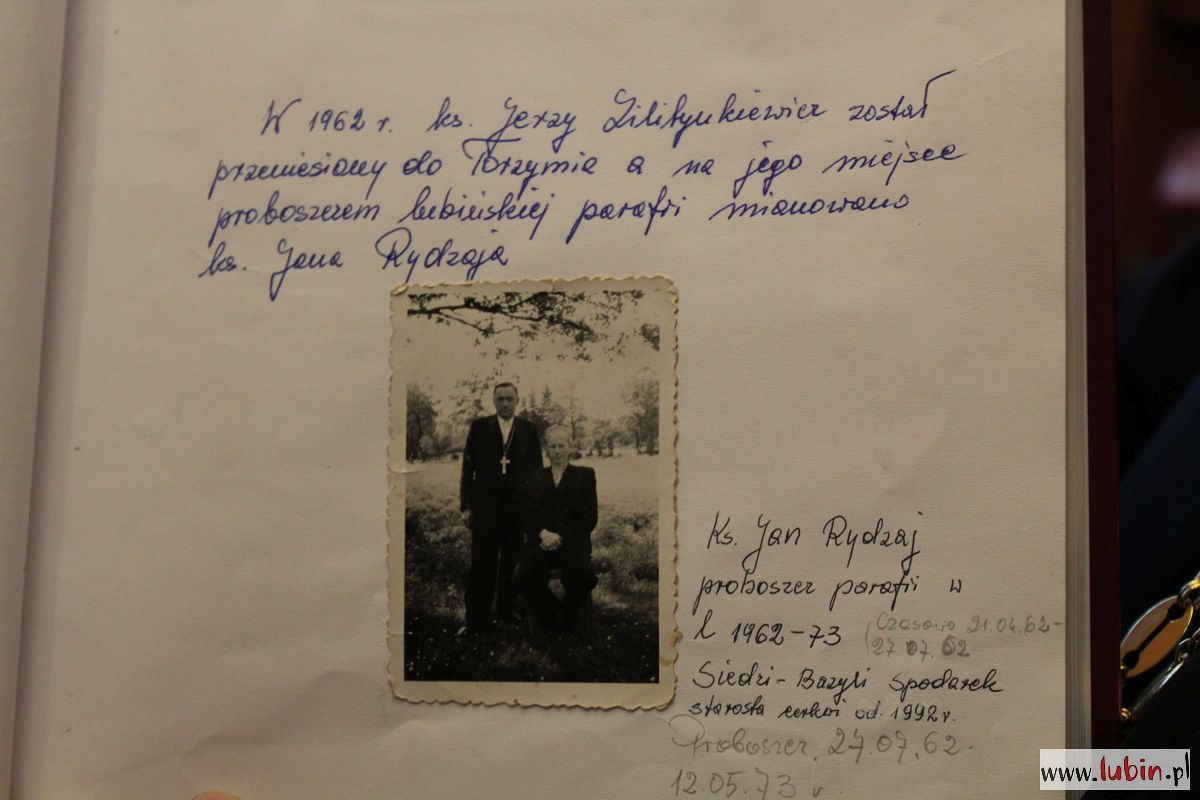 W 1962 r. ks. Jerzy został
przeniesiony do Torzymia a na jego miejsce
proboszczem lubińskiej parafii mianowano
ks. Jana Rydzaja
Ks. Jan Rydzaj
proboszcz parafii w
l 1962-73 (Czasowo 21.04.62-
27.07.62
Siedzi - Bazyli Spodarek
starosta cerkwi od 1992r.
Proboszcz. 27.07.62.
12.05.73 r.
www.lubin.pl